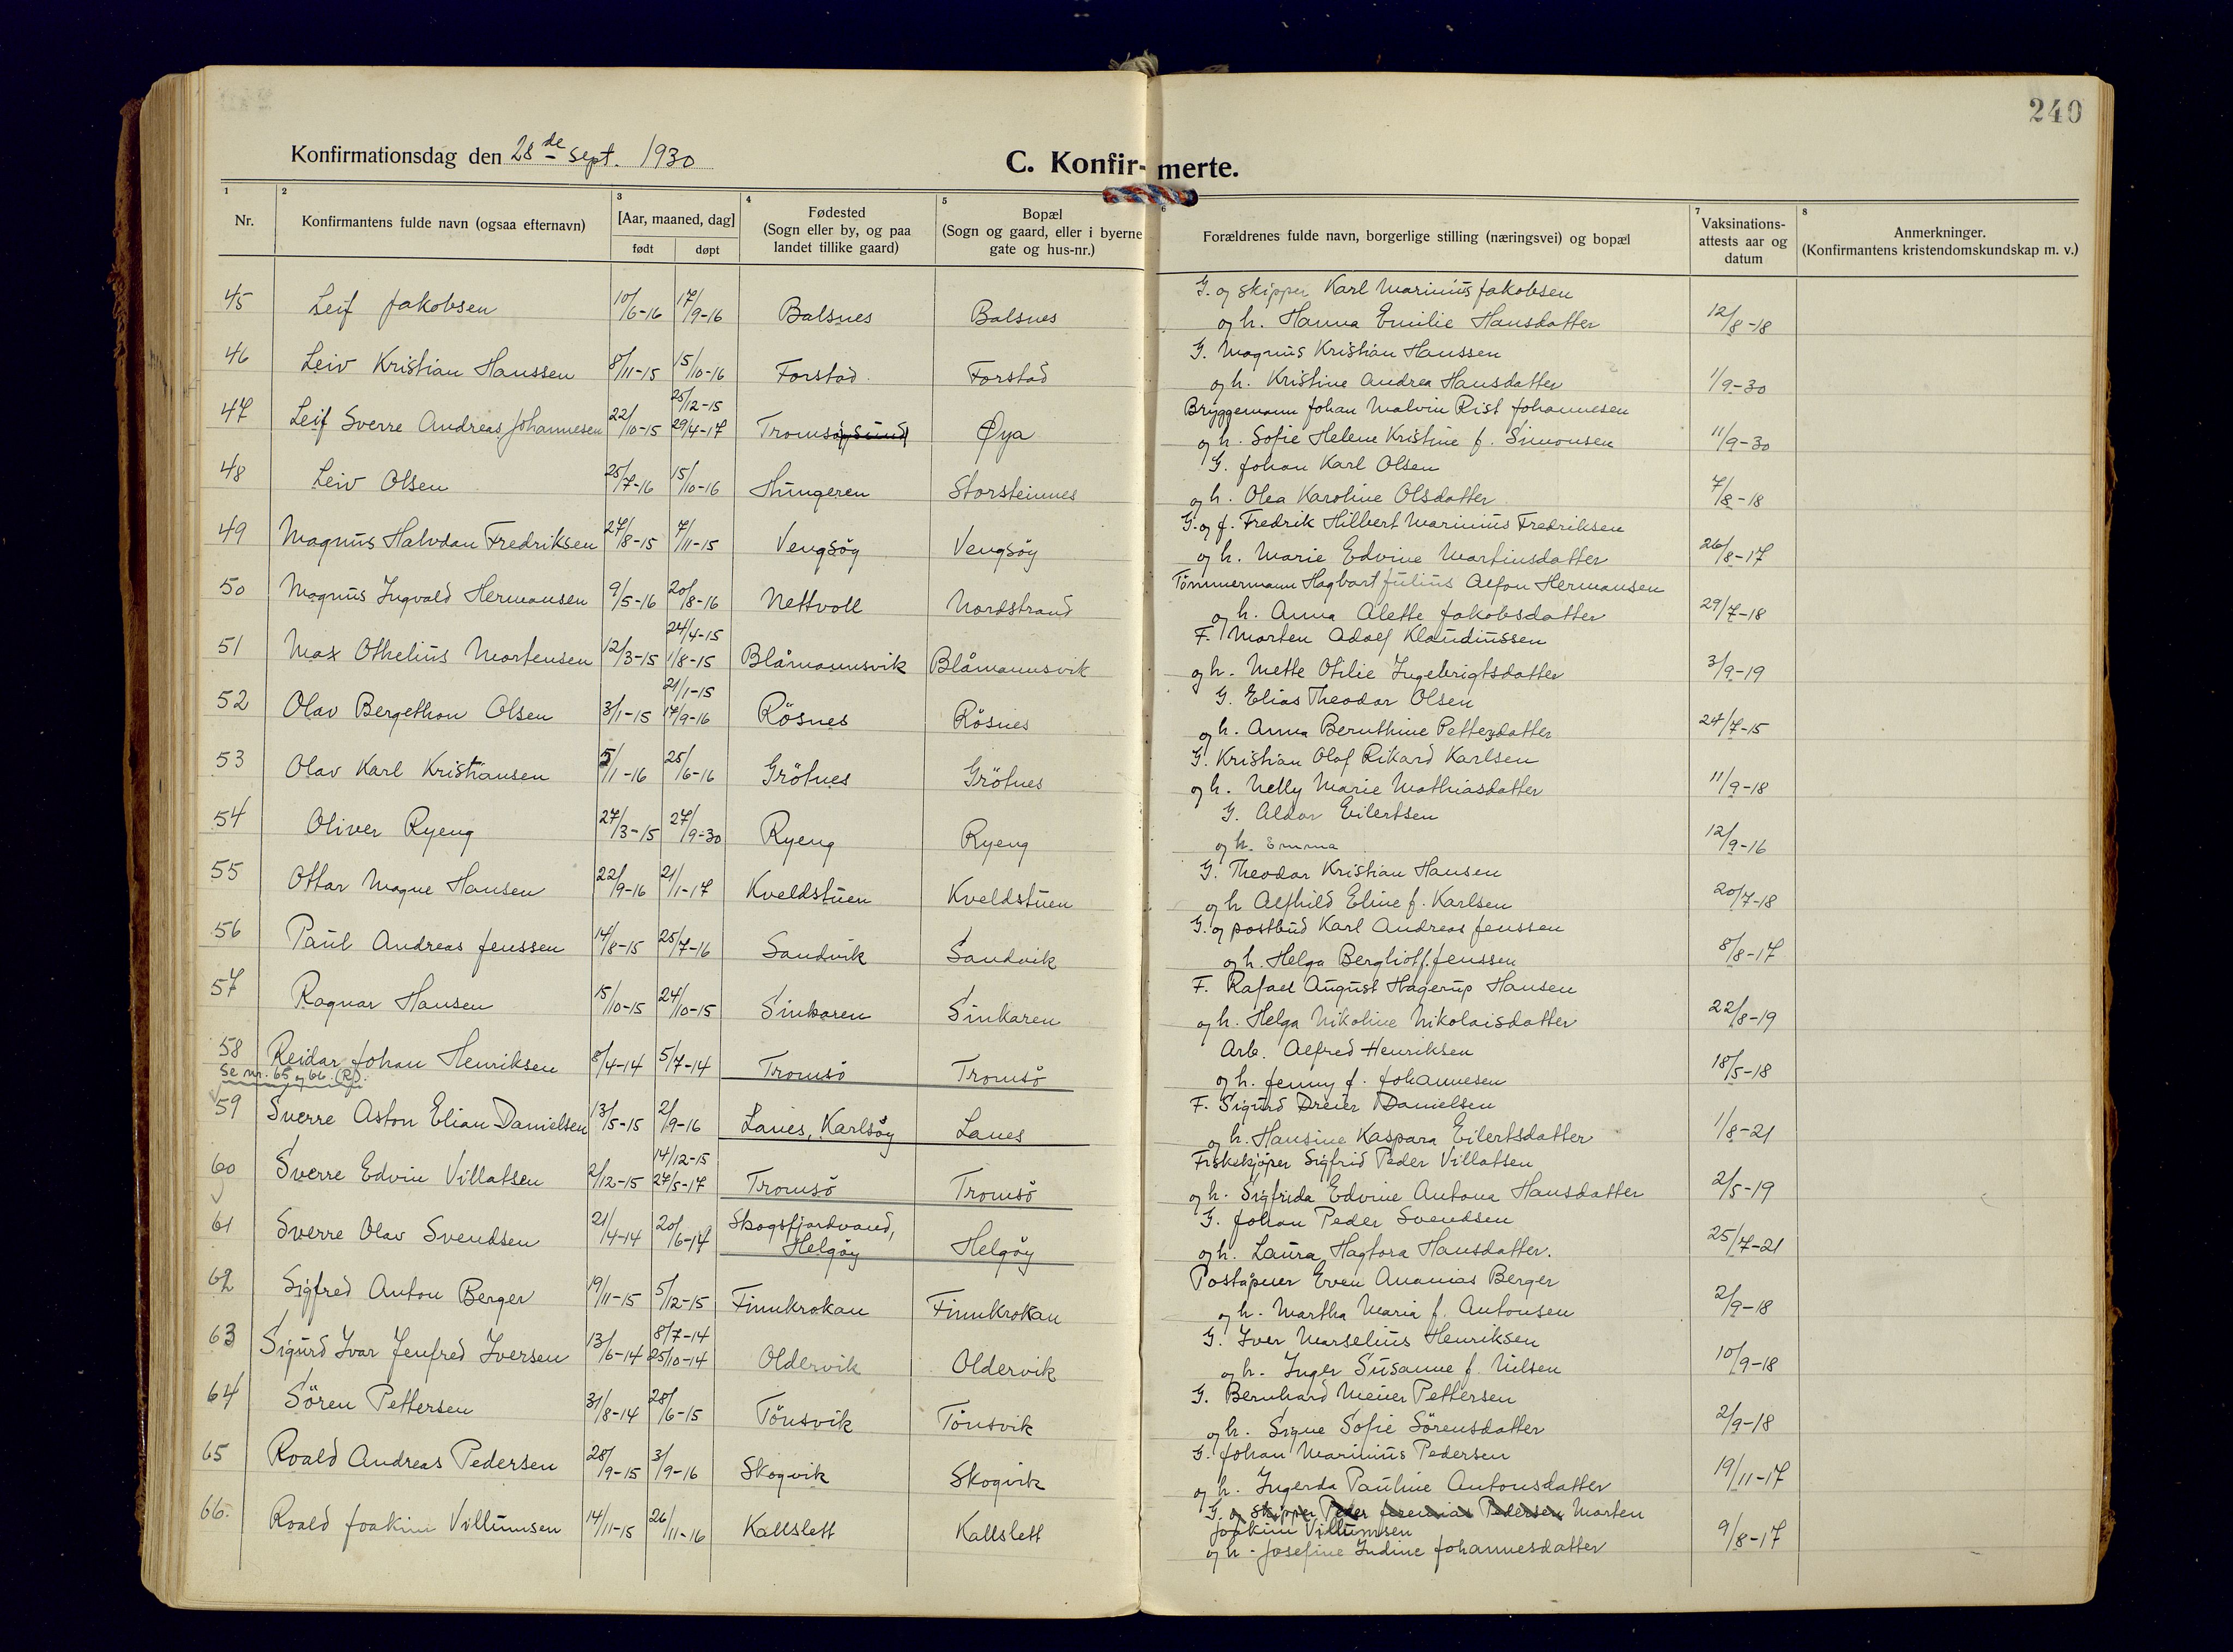 240
Konfirmationsdag den 28de Sept. 1930
C. Konfir- merte.
1 Nr.
2 Konfirmantens fulde navn (ogsaa efternavn)
3 [Aar, maaned, dag]
født døpt
4 Fødested
(Sogn eller by, og paa
landet tillike gaard)
5 Bopæl
(Sogn og gaard, eller i byerne
gate og hus-nr.)
6 Forældrenes fulde navn, borgerlige stilling (næringsvei) og bopæl
7 Vaksinations-
attests aar og
datum
8 Anmerkninger.
(Konfirmantens kristendomskundskap m. v.)
45 Leif Jakobsen 10/6-16 17/9-16 Balsnes Balsnes
G. og skipper Karl Marinius Jakobsen
og h. Hanna Emilie Hansdatter 12/8-18
46 Leiv Kristian Hanssen 8/11-15 15/10-16 Forstad Forstad
G. Magnus Kristian Hanssen
og h. Kristine Andrea Hansdatter 1/9-30
47 Leif Sverre Andreas Johannesen 22/10-15 25/12-15 29/4-17 Tromsöysund Øya
Bryggemann Johan Malvin Rist Johannesen
og h. Sofie Helene Kristine f. Simonsen 11/9-30
48 Leiv Olsen 25/7-16 15/10-16 Hungeren Storsteinnes
G. Johan Karl Olsen
og h. Olea Karoline Olsdatter 7/8-18
49 Magnus Halvdan Fredriksen 27/8-15 7/11-15 Vengsöy Vengsöy
G. og f. Fredrik Hilbert Marinius Fredriksen
og h. Marie Edvine Martinsdatter 26/8-17
50 Magnus Ingvald Hermansen 9/5-16 20/8-16 Nettvoll Nordstrand
Tömmermann Hagbart Julius Alfon Hermansen
og h. Anna Alette Jakobsdatter 29/7-18
51 Max Othelius Mortensen 12/3-15 24/4-15 1/8-15 Blåmannsvik Blåmannsvik
F. Morten Adolf Klaudiussen
og h. Mette Otilie Ingebrigtsdatter 3/9-19
52 Olav Bergethon Olsen 3/1-15 21/1-15 17/9-16 Rösnes Rösnes
G. Elias Theodor Olsen
og h. Anna Bernthine Pettersdatter 24/7-15
53 Olav Karl Kristiansen 5/1-16 25/6-16 Grötnes Grötnes
G. Kristian Olaf Rikard Karlsen
og h. Nelly Marie Mathiasdatter 11/9-18
54 Oliver Ryeng 27/3-15 27/9-30 Ryeng Ryeng
G. Aldor Eilertsen
og h. Emma 12/9-16
55 Ottar Magne Hansen 22/9-16 21/1-17 Kveldstuen Kveldstuen
G. Theodor Kristian Hansen
og h Alfhild Eline f. Karlsen 20/7-18
56 Paul Andreas Jenssen 14/8-15 25/7-16 Sandvik Sandvik
G. og postbud Karl Andreas Jenssen
og h. Helga Bergliot f. Jenssen 8/8-17
57 Ragnar Hansen 15/10-15 24/10-15 Sinkaren Sinkaren
F. Rafael August Hagerup Hansen
og h. Helga Nikoline Nikolaisdatter 22/8-19
58 Reidar Johan Henriksen 8/4-14 5/7-14 Tromsö Tromsö
Se nr. 65 og 66. (R).
Arb. Alfred Henriksen
og h. Jenny f. Johannesen 18/5-18
59 Sverre Aston Elian Danielsen 13/5-15 2/9-16 Lanes, Karlsöy Lanes
F. Sigurd Dreier Danielsen
og h. Hansine Kaspara Eilertsdatter 1/8-21
60 Sverre Edvin Villatsen 2/12-15 14/12-15 27/5-17 Tromsö Tromsö
Fiskekjøper Sigfrid Peder Villatsen
og h. Sigfrida Edvine Antona Hansdatter 2/5-19
61 Sverre Olav Svendsen 21/4-14 20/6-14 Skogsfjordvand, Helgöy Helgöy
G. Johan Peder Svendsen
og h. Laura Hagtora Hansdatter. 25/7-21
62 Sigfred Anton Berger 19/11-15 5/12-15 Finnkroken Finnkroken
Poståpner Even Ananias Berger
og h. Martha Maria f. Antonsen 2/9-18
63 Sigurd Ivar Jenfred Iversen 13/6-14 8/7-14 25/10-14 Oldervik Oldervik
G. Iver Marselius Henriksen
og h. Inger Susanne f. Nilsen 10/9-18
64 Sören Pettersen 31/8-14 28/6-15 Tönsvik Tönsvik
G. Bernhard Meier Pettersen
og h. Signe Sofie Sörensdatter 2/9-18
65 Roald Andreas Pedersen 28/9-15 3/9-16 Skogvik Skogvik
G. Johan Marinius Pedersen
og h. Ingerda Pauline Antonsdatter 19/11-17
66. Roald Joakim Villumsen 14/11-15 26/11-16 Kallslett Kallslett
G. og skipper Peder Jeremias Pedersen Morten
Joakim Villumsen
og h. Josefine Indine Johannesdatter 9/8-17